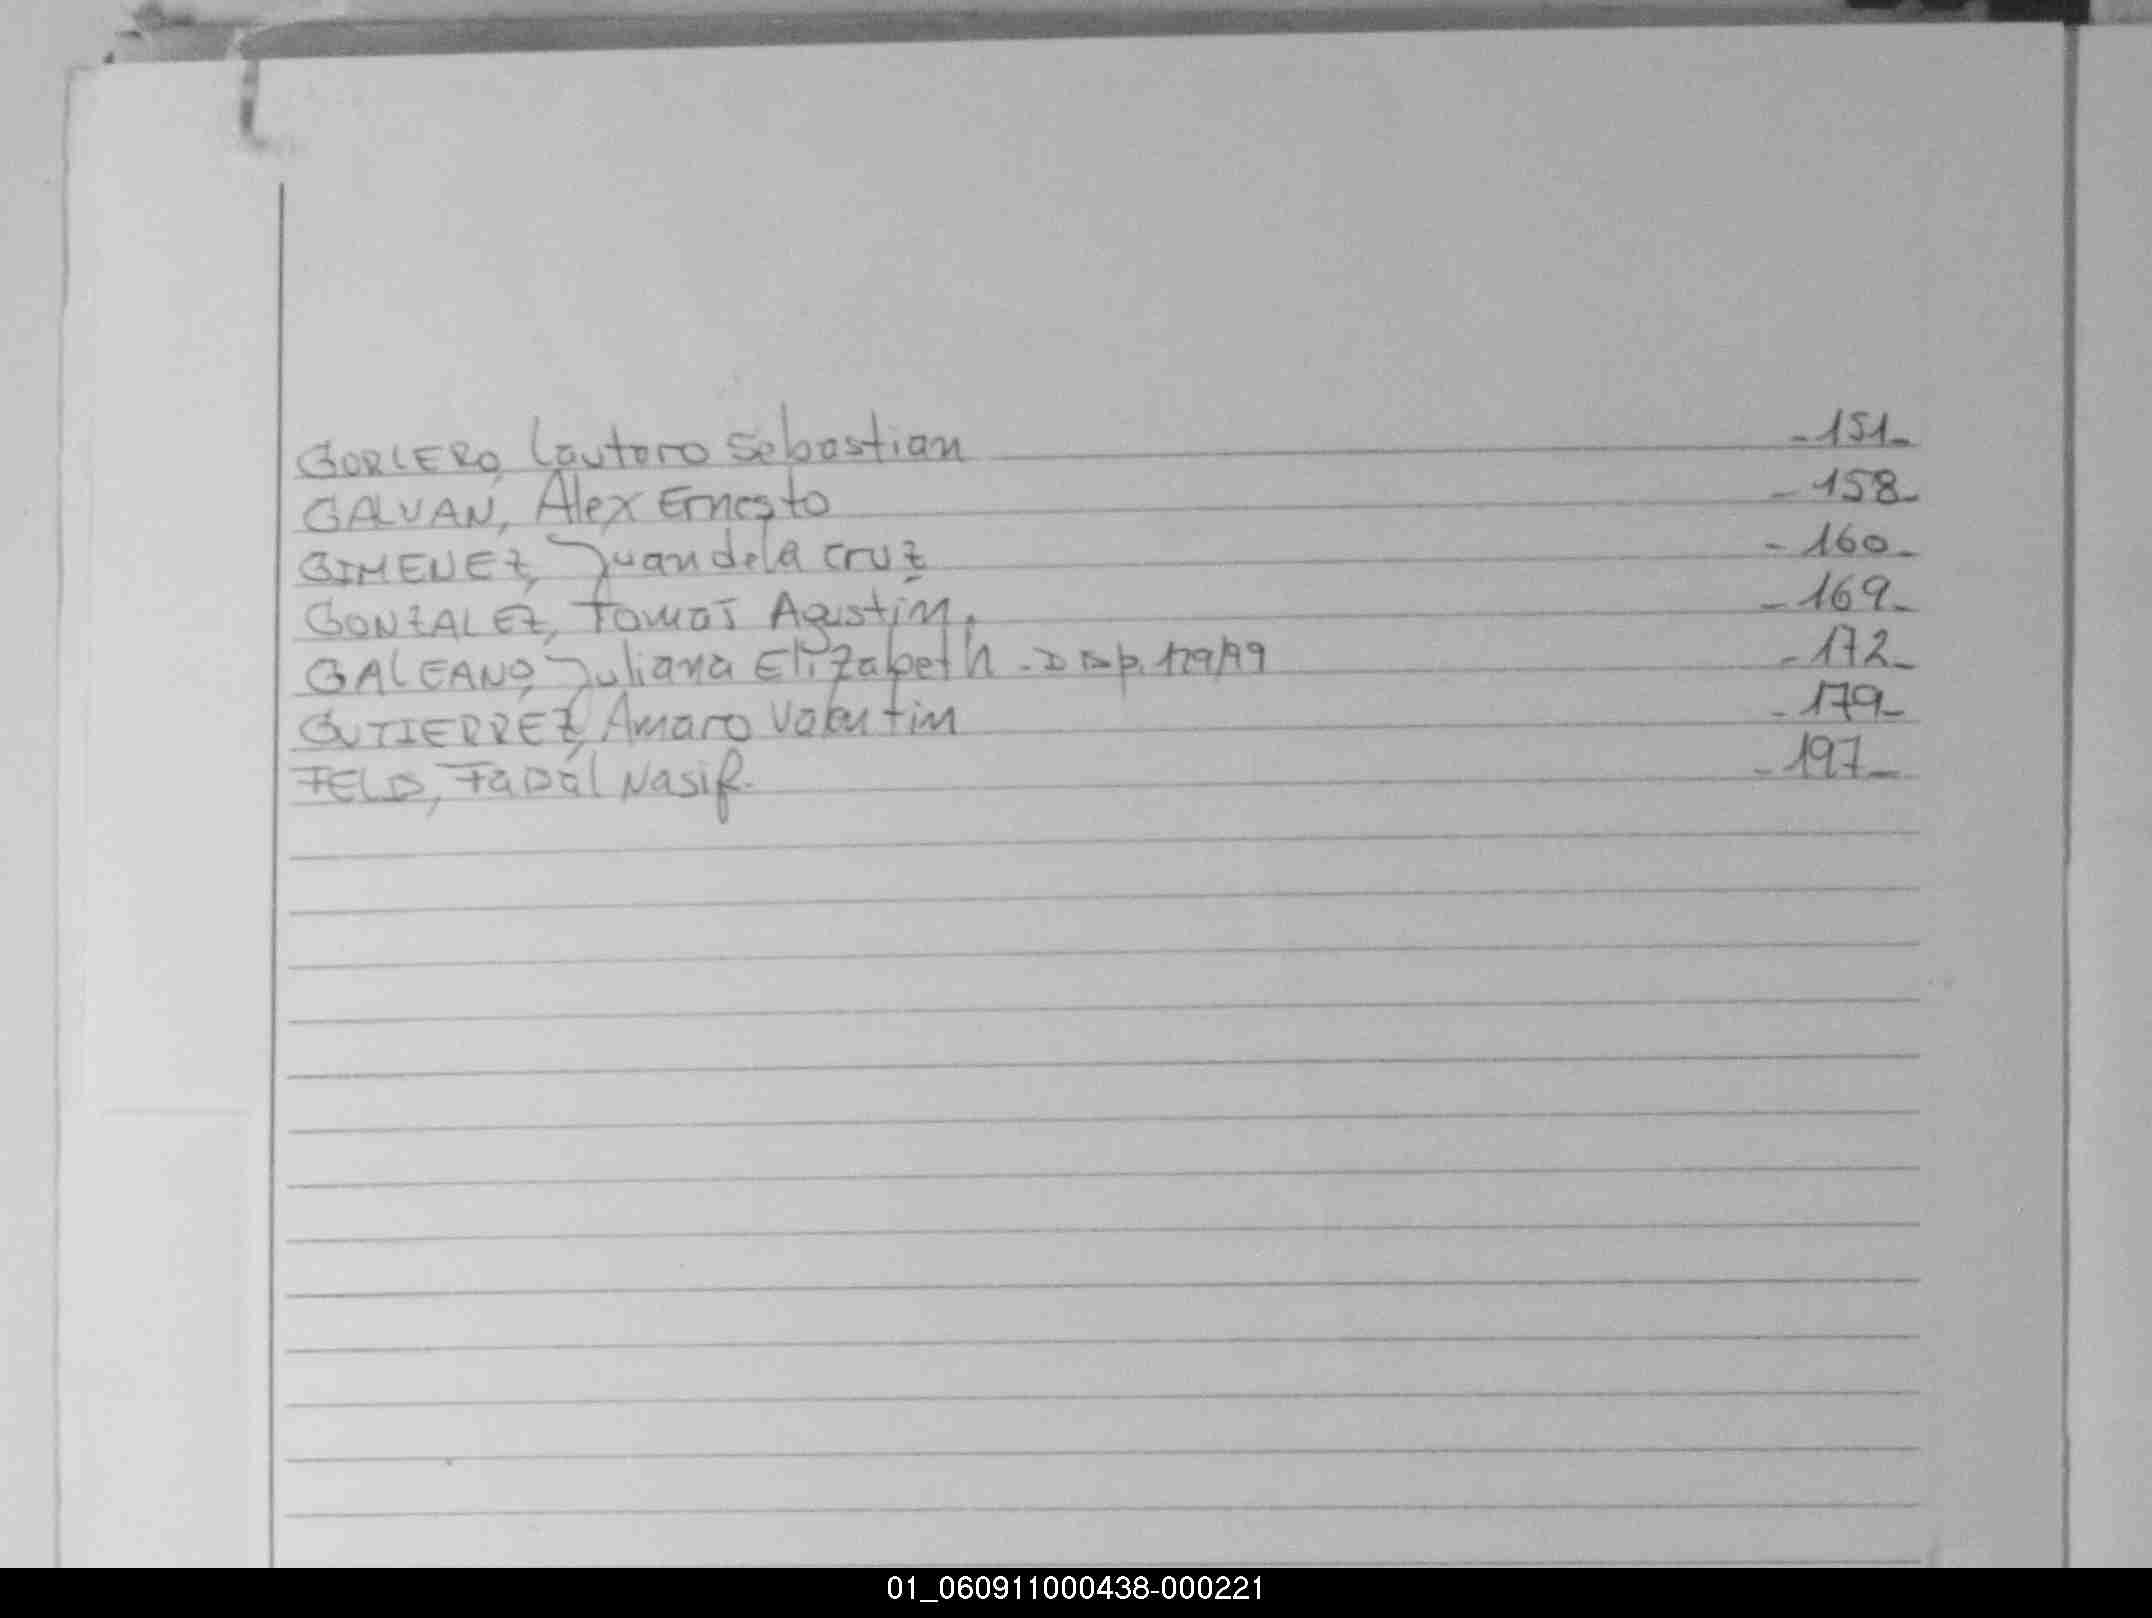 GORLERO, Lautaro Sebastian -151-
GALVAN, Alex Ernesto -158-
GIMENEZ, Juan de la cruz -160-
GONZALEZ, Tomas Agustin. -169-
GALEANO, Juliana Elizabeth - Disp. 129/99 -172-
GUTIERREZ, Amaro Valentin -179-
FELD, Fadál Nasif. -197-
01_060911000438-000221